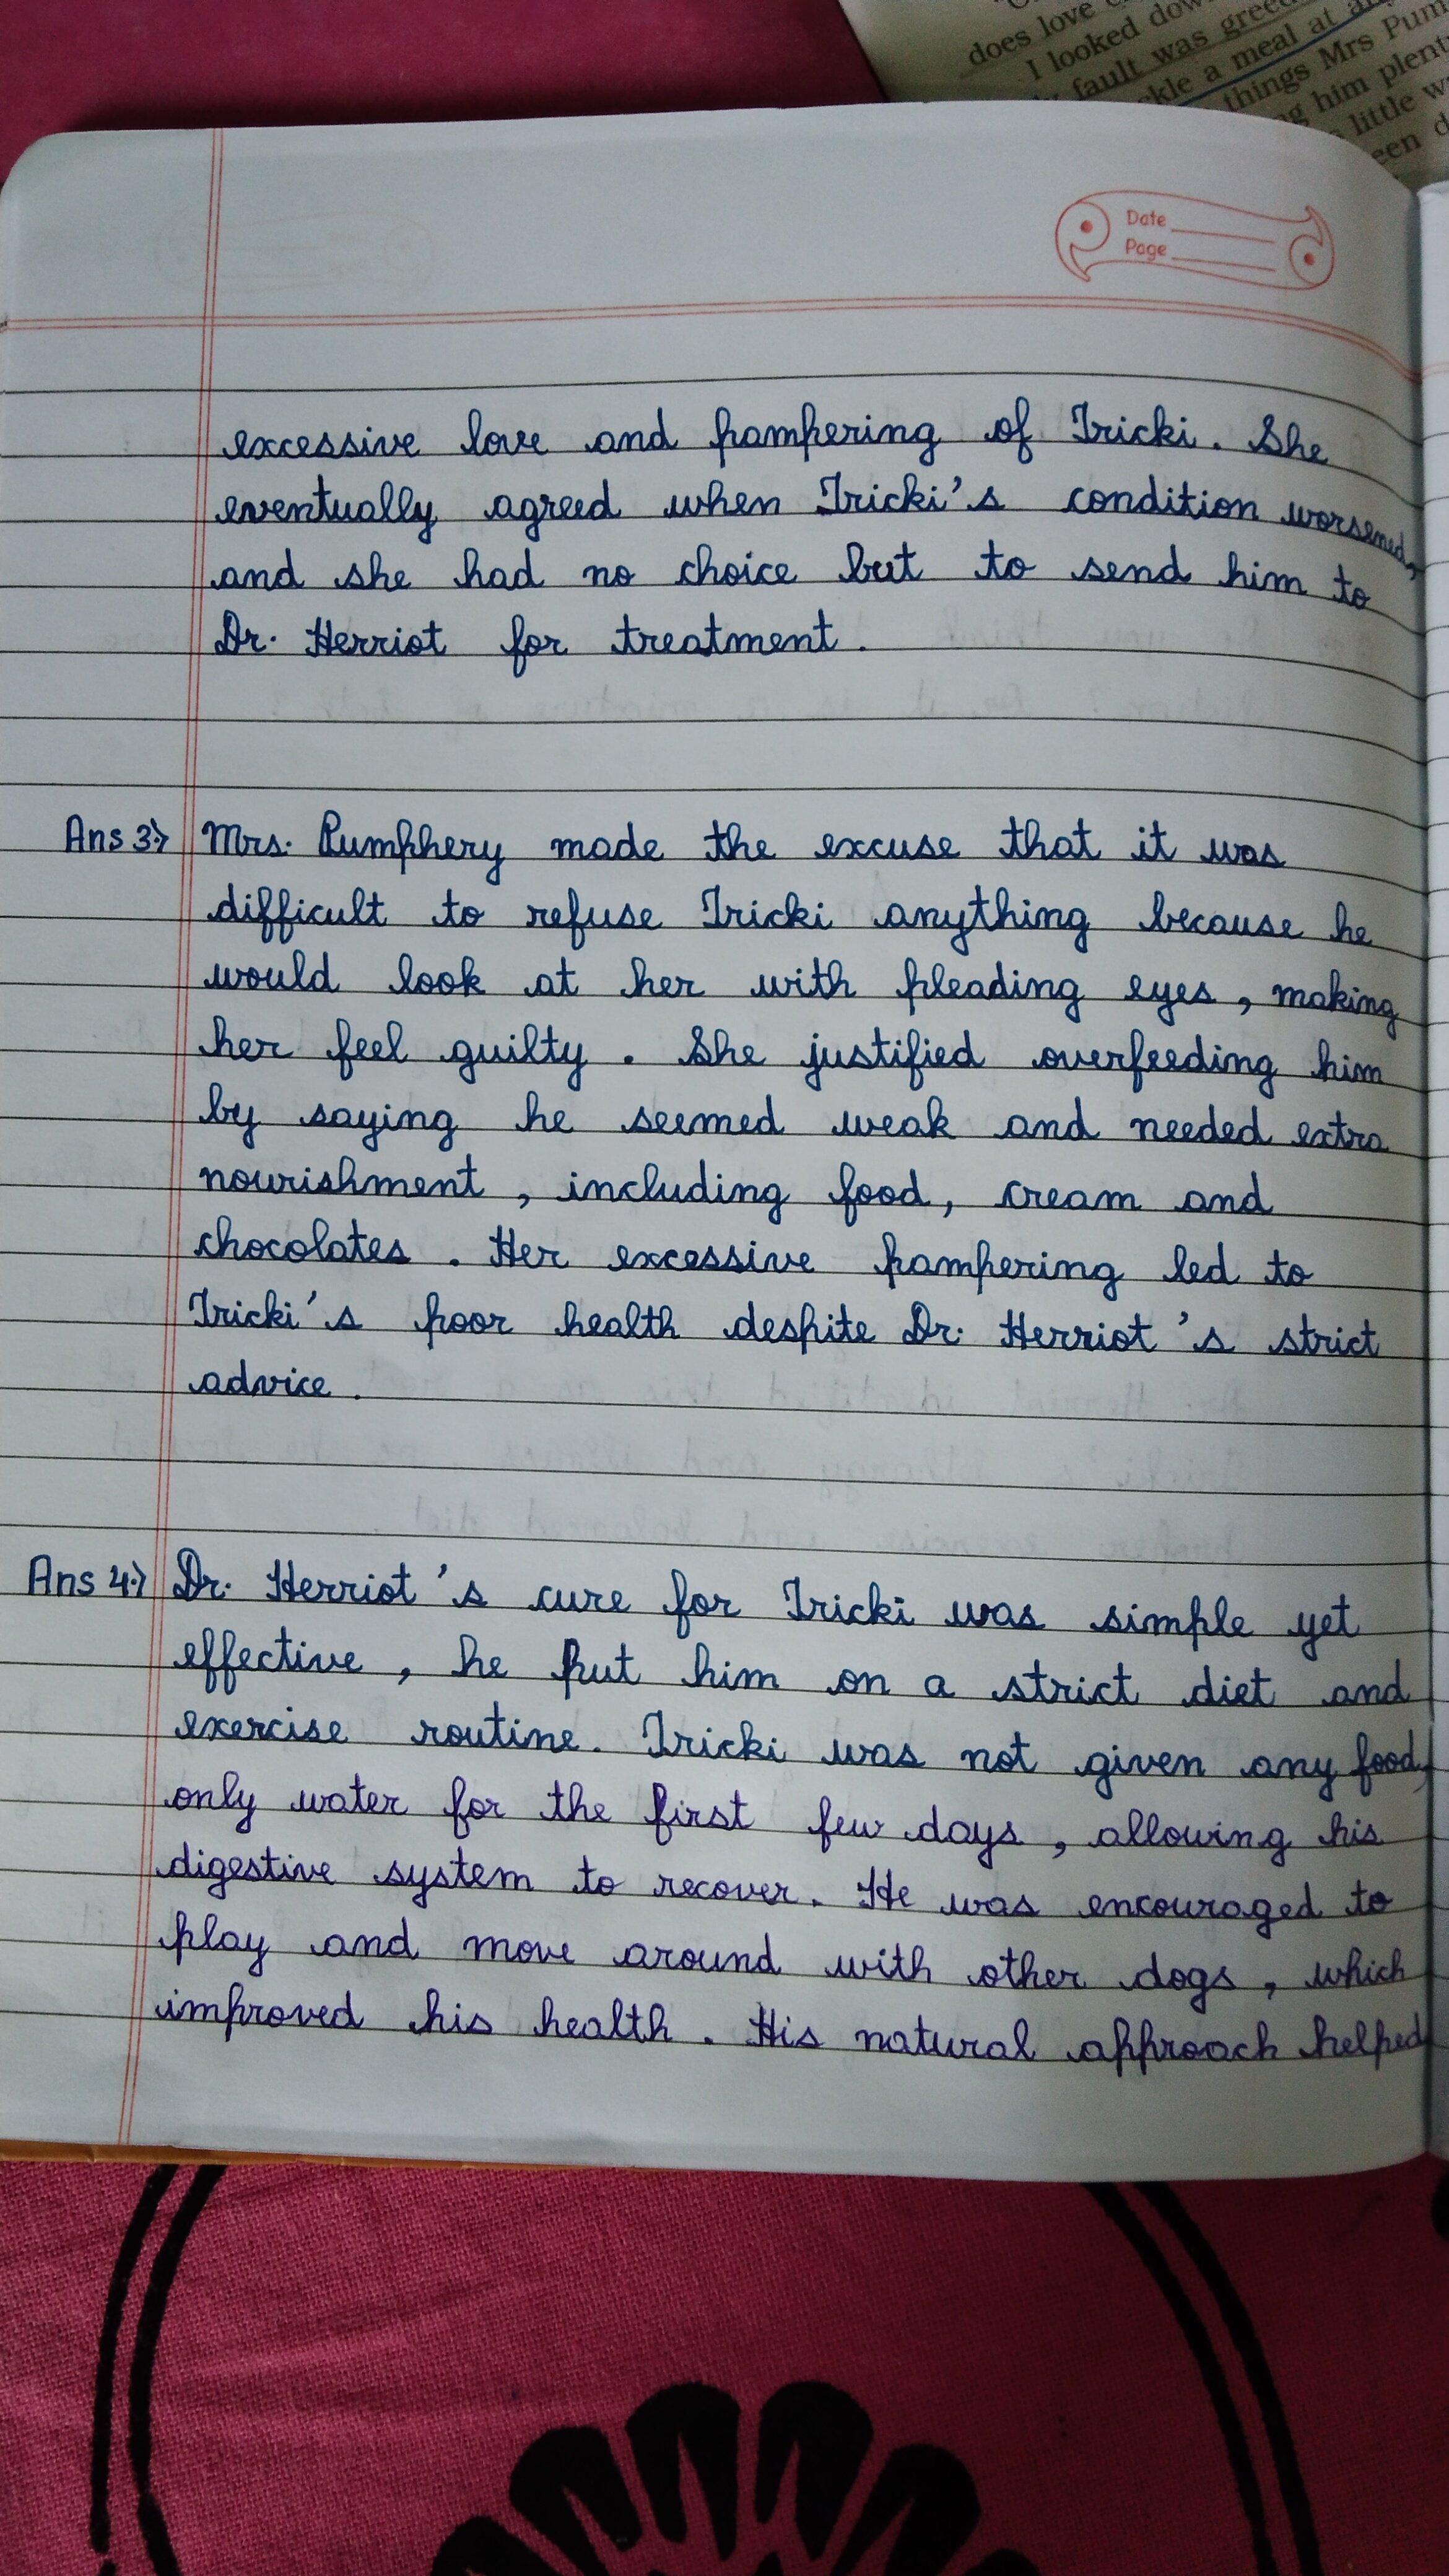 does love c
I looked dow
fault was greed
ckle a meal at a
things Mrs Pum
ng him plent
little w
een d
Date
Page
excessive love and pampering of Tricki. She
eventually agreed when Tricki's condition worsened,
and she had no choice but to send him to
Dr. Herriot for treatment.
Ans 3.) Mrs. Pumphery made the excuse that it was
difficult to refuse Tricki anything because he
would look at her with pleading eyes, making
her feel guilty. She justified overfeeding him
by saying he seemed weak and needed extra
nourishment, including food, cream and
chocolates. Her excessive pampering led to
Tricki's poor health despite Dr. Herriot's strict
advice.
Ans 4.) Dr. Herriot's cure for Tricki was simple yet
effective, he put him on a strict diet and
exercise routine. Tricki was not given any food,
only water for the first few days, allowing his
digestive system to recover. He was encouraged to
play and move around with other dogs, which
improved his health. His natural approach helped